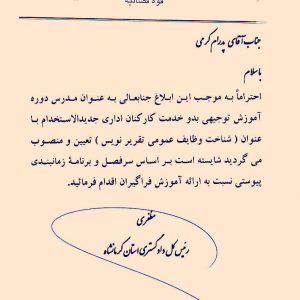 قوه قضائیه
جناب آقای پدرام کرمی
باسلام
احتراماً به موجب این ابلاغ جنابعالی به عنوان مدرس دوره
آموزش توجیهی بدو خدمت کارکنان اداری جدیدالاستخدام با
عنوان ( شناخت وظایف عمومی تقریر نویس ) تعیین و منصوب
می گردید شایسته است بر اساس سرفصل و برنامهٔ زمانبندی
پیوستی نسبت به ارائه آموزش فراگیران اقدام فرمائید.
مظفری
رئیس کل دادگستری استان کرمانشاه